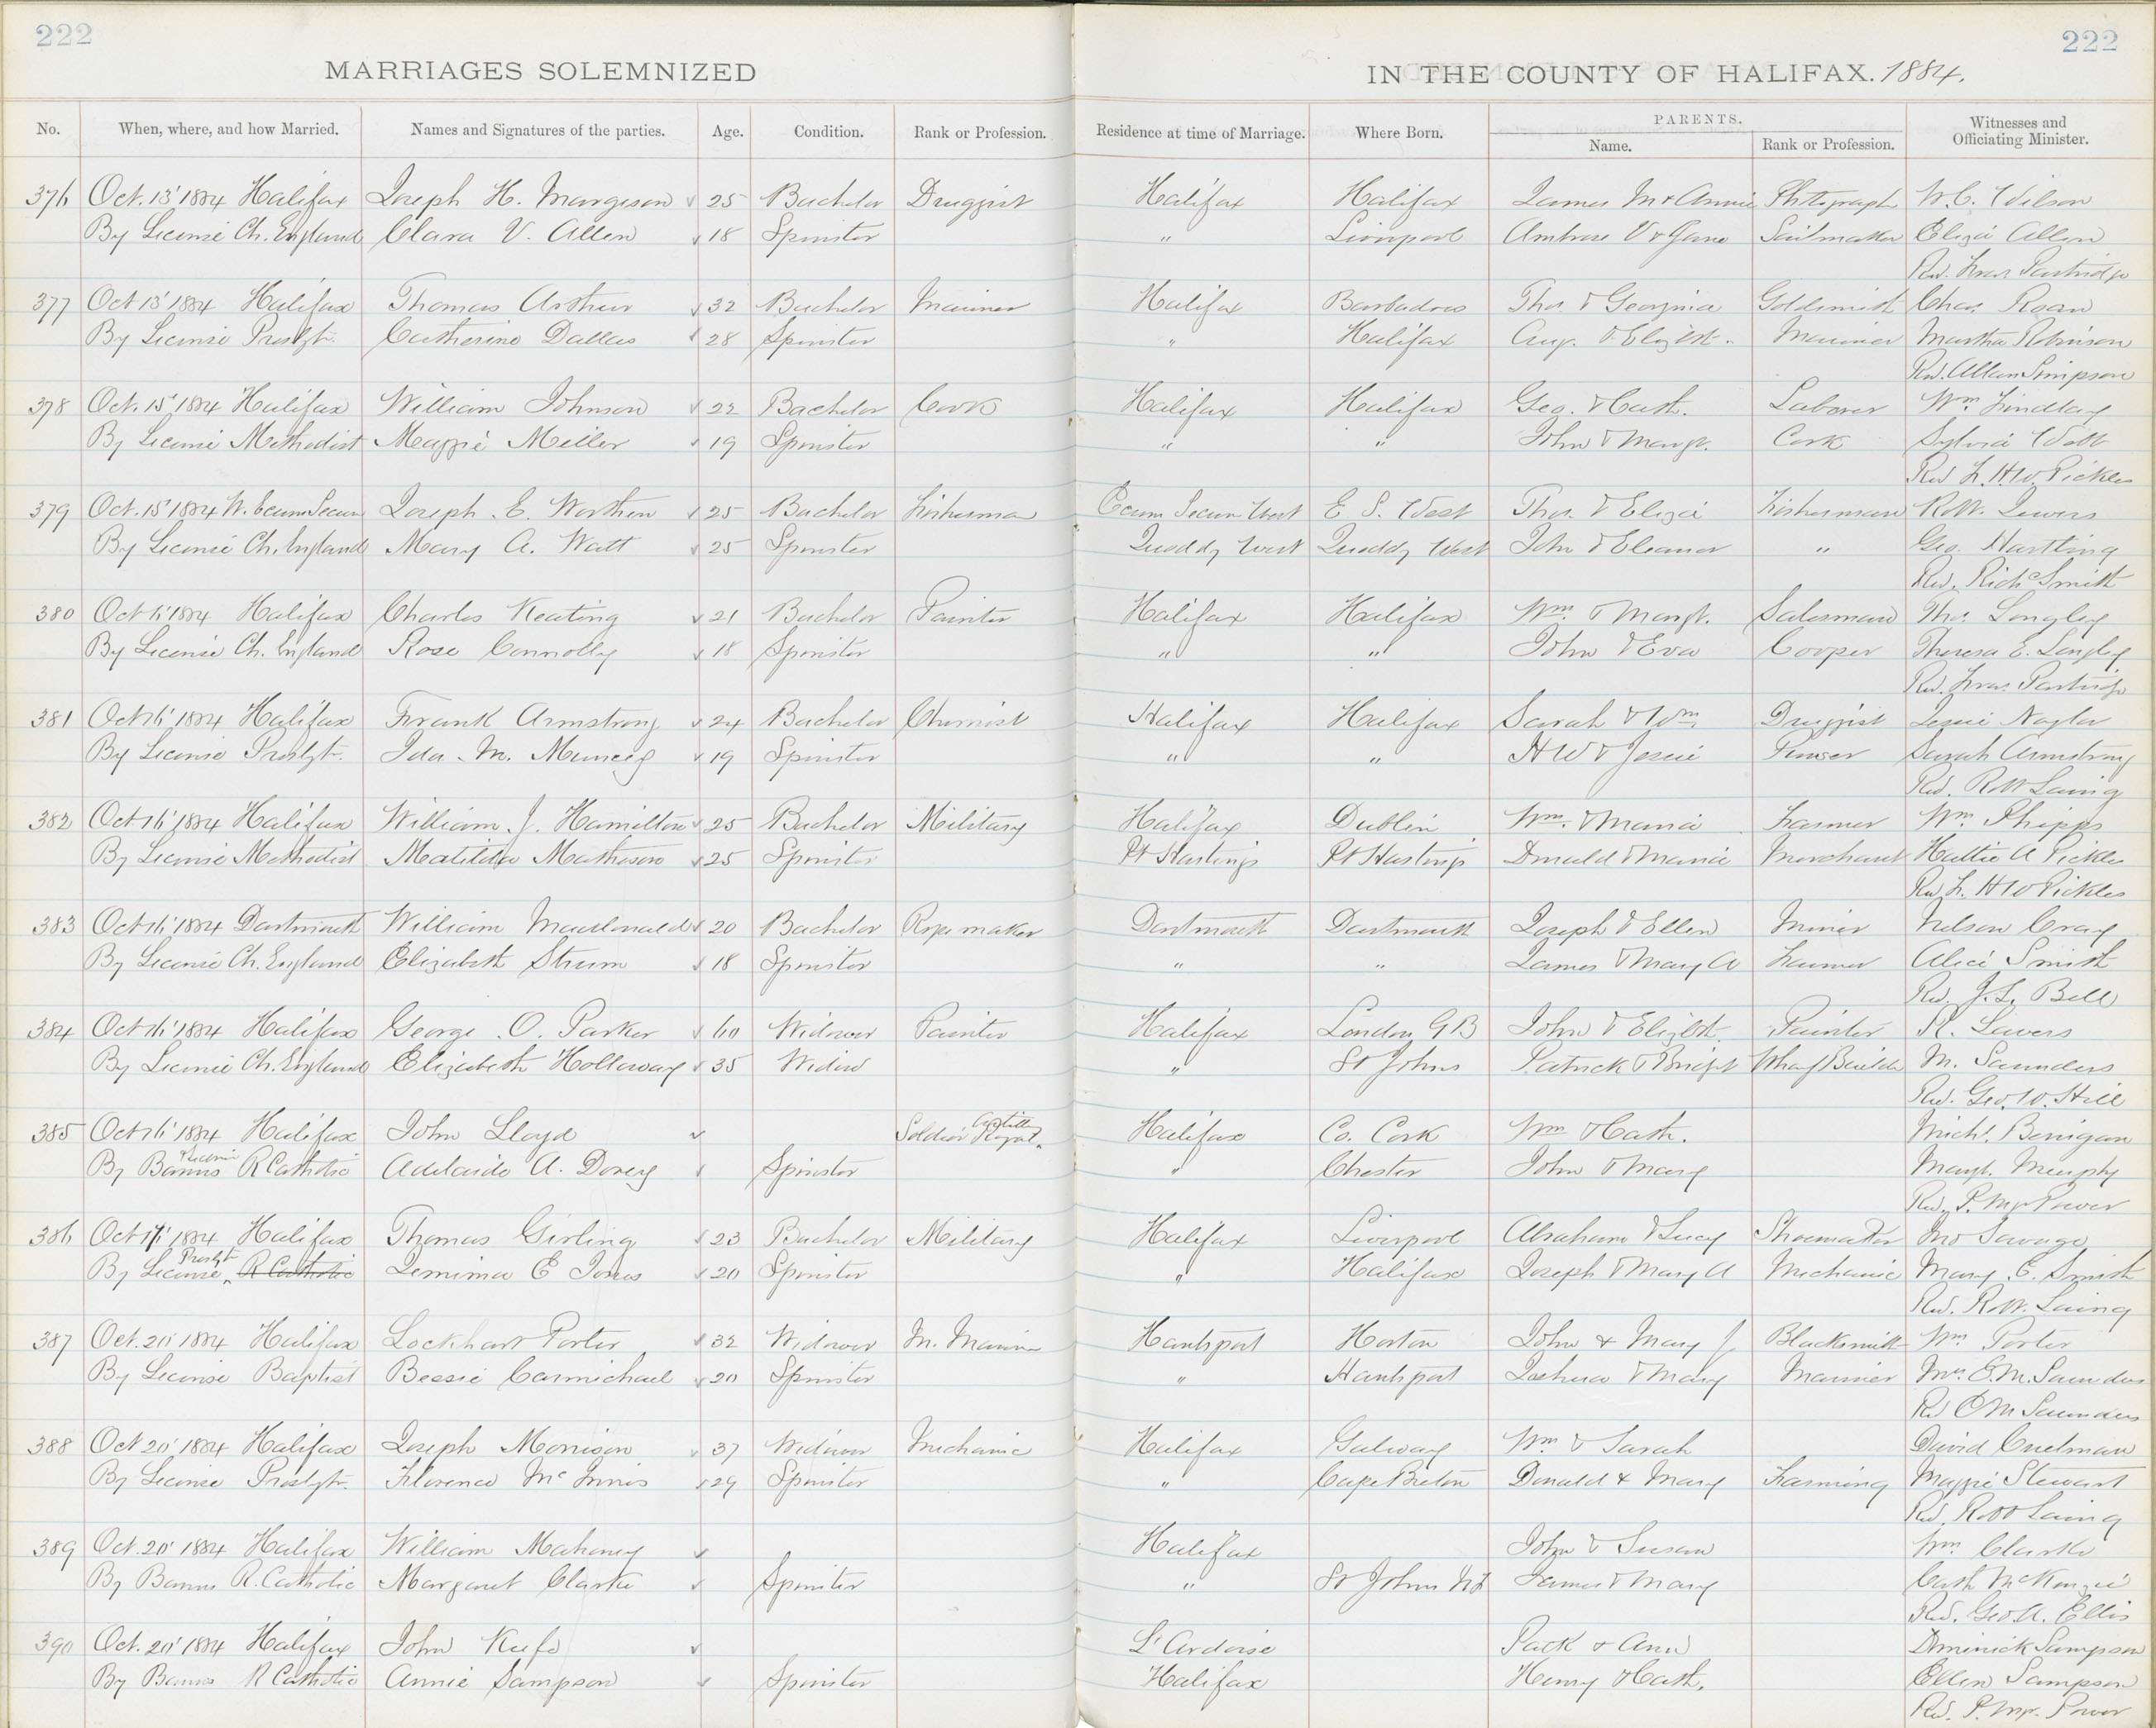 222
222
MARRIAGES SOLEMNIZED
IN THE COUNTY OF HALIFAX. 1884.
No. When, where, and how Married. Names and Signatures of the parties. Age. Condition. Rank or Profession. Residence at time of Marriage. Where Born. PARENTS. Name. Rank or Profession. Witnesses and Officiating Minister.
376 Oct. 13' 1884 Halifax Joseph H. Margeson 25 Bachelor Druggist Halifax Halifax James M & Annie Photograph W. C. Wilson
By License Ch. England Clara V. Allen 18 Spinster " Liverpool Ambrose V & Jane Sailmaker Eliza Allen
Rev. Fras Partridge
377 Oct 13' 1884 Halifax Thomas Arthur 32 Bachelor Mariner Halifax Barbadoes Thos. & Georgina Goldsmith Chas. Roan
By License Presbyt. Catherine Dallas 28 Spinster " Halifax Aug. & Elizbt. Mariner Martha Robinson
Rev. Allan Simpson
378 Oct. 15' 1884 Halifax William Johnson 22 Bachelor Cook Halifax Halifax Geo. & Cath. Laborer Wm Findlay
By License Methodist Maggie Miller 19 Spinster " " John & Margt. Cook Sylvia Webb
Rev F. H W. Pickles
379 Oct. 15' 1884 W. Ecum Secum Joseph E. Worthen 25 Bachelor Fisherman Ecum Secum West E. S. West Thos. & Eliza Fisherman Robt. Jewers
By License Ch. England Mary A. Watt 25 Spinster Quoddy West Quoddy West John & Eleanor " Geo. Hartling
Rev. Richd Smith
380 Oct 16' 1884 Halifax Charles Keating 21 Bachelor Painter Halifax Halifax Wm. & Margt. Salesman Thos. Longley
By License Ch. England Rose Connolly 18 Spinster " " John & Eva Cooper Theresa E. Longley
Rev. Fras. Partridge
381 Oct 16' 1884 Halifax Frank Armstrong 24 Bachelor Chemist Halifax Halifax Sarah & Wm Druggist Jessie Naylor
By License Presbyt. Ida M. Muncey 19 Spinster " " H W & Jessie Purser Sarah Armstrong
Rev. Robt Laing
382 Oct 16' 1884 Halifax William J. Hamilton 25 Bachelor Military Halifax Dublin Wm. & Maria Farmer Wm Phipps
By License Methodist Matilda Matheson 25 Spinster Pt Hastings Pt Hastings Donald & Maria Merchant Hattie A Pickles
Rev F. H W Pickles
383 Oct 16' 1884 Dartmouth William Macdonald 20 Bachelor Rope maker Dartmouth Dartmouth Joseph & Ellen Miner Nelson Cray
By License Ch. England Elizabeth Strum 18 Spinster " " James & Mary A Farmer Alice Smith
Rev. J. L. Bell
384 Oct 16' 1884 Halifax George O. Parker 60 Widower Painter Halifax London GB John & Elizbt. Painter R. Lavers
By License Ch. England Elizabeth Holloway 35 Widow " St Johns Patrick & Bridgt Wharf Builder M. Saunders
Rev. Geo. W. Hill
385 Oct 16' 1884 Halifax John Lloyd Soldier Royal Artilly Halifax Co. Cork Wm & Cath. Michl. Benigan
By Banns License R Catholic Adelaide A. Dorey Spinster " Chester John & Mary Margt. Murphy
Rev. P. Mc Power
386 Oct 17' 1884 Halifax Thomas Girling 23 Bachelor Military Halifax Liverpool Abraham & Lucy Shoemaker Jno Savage
By License Presbyt R Catholic Jemima E Jones 20 Spinster " Halifax Joseph & Mary A Mechanic Mary E. Smith
Rev. Robt. Laing
387 Oct. 20' 1884 Halifax Lockhart Porter 32 Widower M. Mariner Hantsport Horton John & Mary J Blacksmith Wm Porter
By License Baptist Bessie Carmichael 20 Spinster " Hantsport Joshua & Mary Mariner Mrs. E. M. Saunders
Rev E M Saunders
388 Oct 20' 1884 Halifax Joseph Morrison 37 Widower Mechanic Halifax Galway Wm & Sarah David Creelman
By License Presbyt. Florence McInnis 29 Spinster " Cape Breton Donald & Mary Farming Maggie Stewart
Rev. Robt Laing
389 Oct. 20' 1884 Halifax William Mahoney Halifax John & Susan Wm Clarke
By Banns R. Catholic Margaret Clarke Spinster " St Johns Nf James & Mary Cath McKenzie
Rev. Geo. A. Ellis
390 Oct. 20' 1884 Halifax John Keefe L'Ardoise Patk & Ann Dominick Sampson
By Banns R Catholic Annie Sampson Spinster Halifax Henry & Cath. Ellen Sampson
Rev. P. Mc. Power